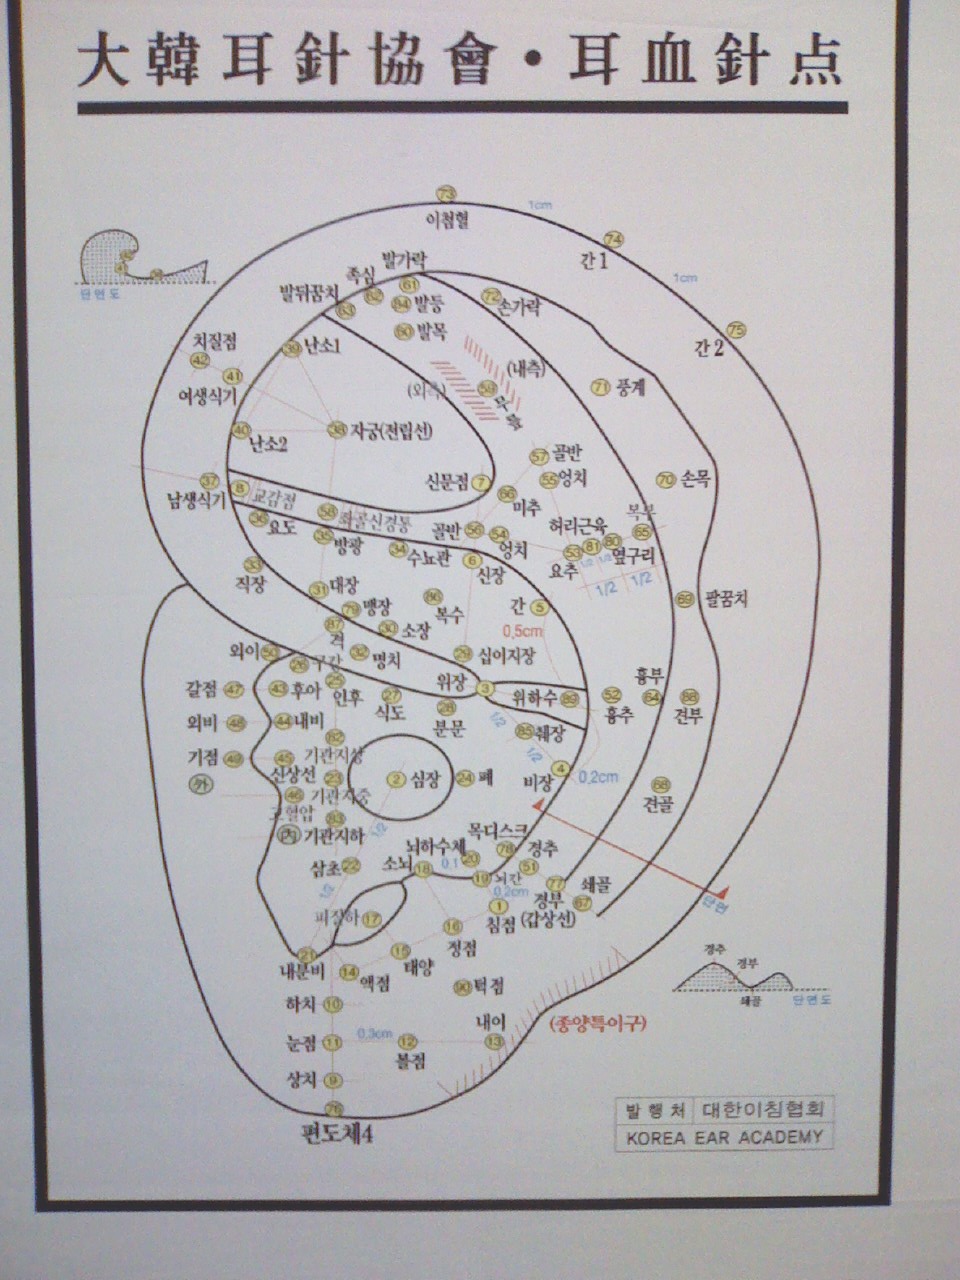 大韓耳針協會・耳血針点
73
이첨혈
1cm
74
간1
1cm
75
간2
단면도
발가락
족심
61
발뒤꿈치
62
63
84
발등
72
손가락
60
발목
치질점
42
39
난소1
(내측)
41
(외측)
59
무릎
71
풍계
여생식기
40
난소2
38
자궁(전립선)
57
골반
37
남생식기
8
교감점
신문점
7
55
엉치
70
손목
66
미추
36
요도
58
좌골신경통
골반
56
54
엉치
허리근육
복부
65
35
방광
34
수뇨관
6
신장
53
81
80
옆구리
요추
1/2
1/2
1/2
1/2
33
직장
31
대장
79
맹장
86
복수
간
5
69
팔꿈치
87
격
30
소장
0.5cm
외이
50
26
구강
32
명치
29
십이지장
갈점
47
43
후아
25
인후
27
식도
위장
3
위하수
89
52
흉추
흉부
64
88
견부
28
분문
외비
48
44
내비
82
1/2
85
췌장
기점
49
45
기관지상
1/2
4
비장
0.2cm
外
신상선
23
2
심장
24
폐
68
견골
46
기관지중
고혈압
83
1/2
內
기관지하
목디스크
78
경추
51
삼초
22
소뇌
18
뇌하수체
20
0.1
19
뇌간
0.2cm
77
쇄골
67
1/2
1
침점
경부
(갑상선)
단면
피질하
17
16
정점
21
내분비
15
태양
14
액점
90
턱점
경추
경부
쇄골
단면도
하치
10
내이
13
(종양특이구)
눈점
11
0.3cm
12
볼점
상치
9
76
편도체4
발행처 대한이침협회
KOREA EAR ACADEMY